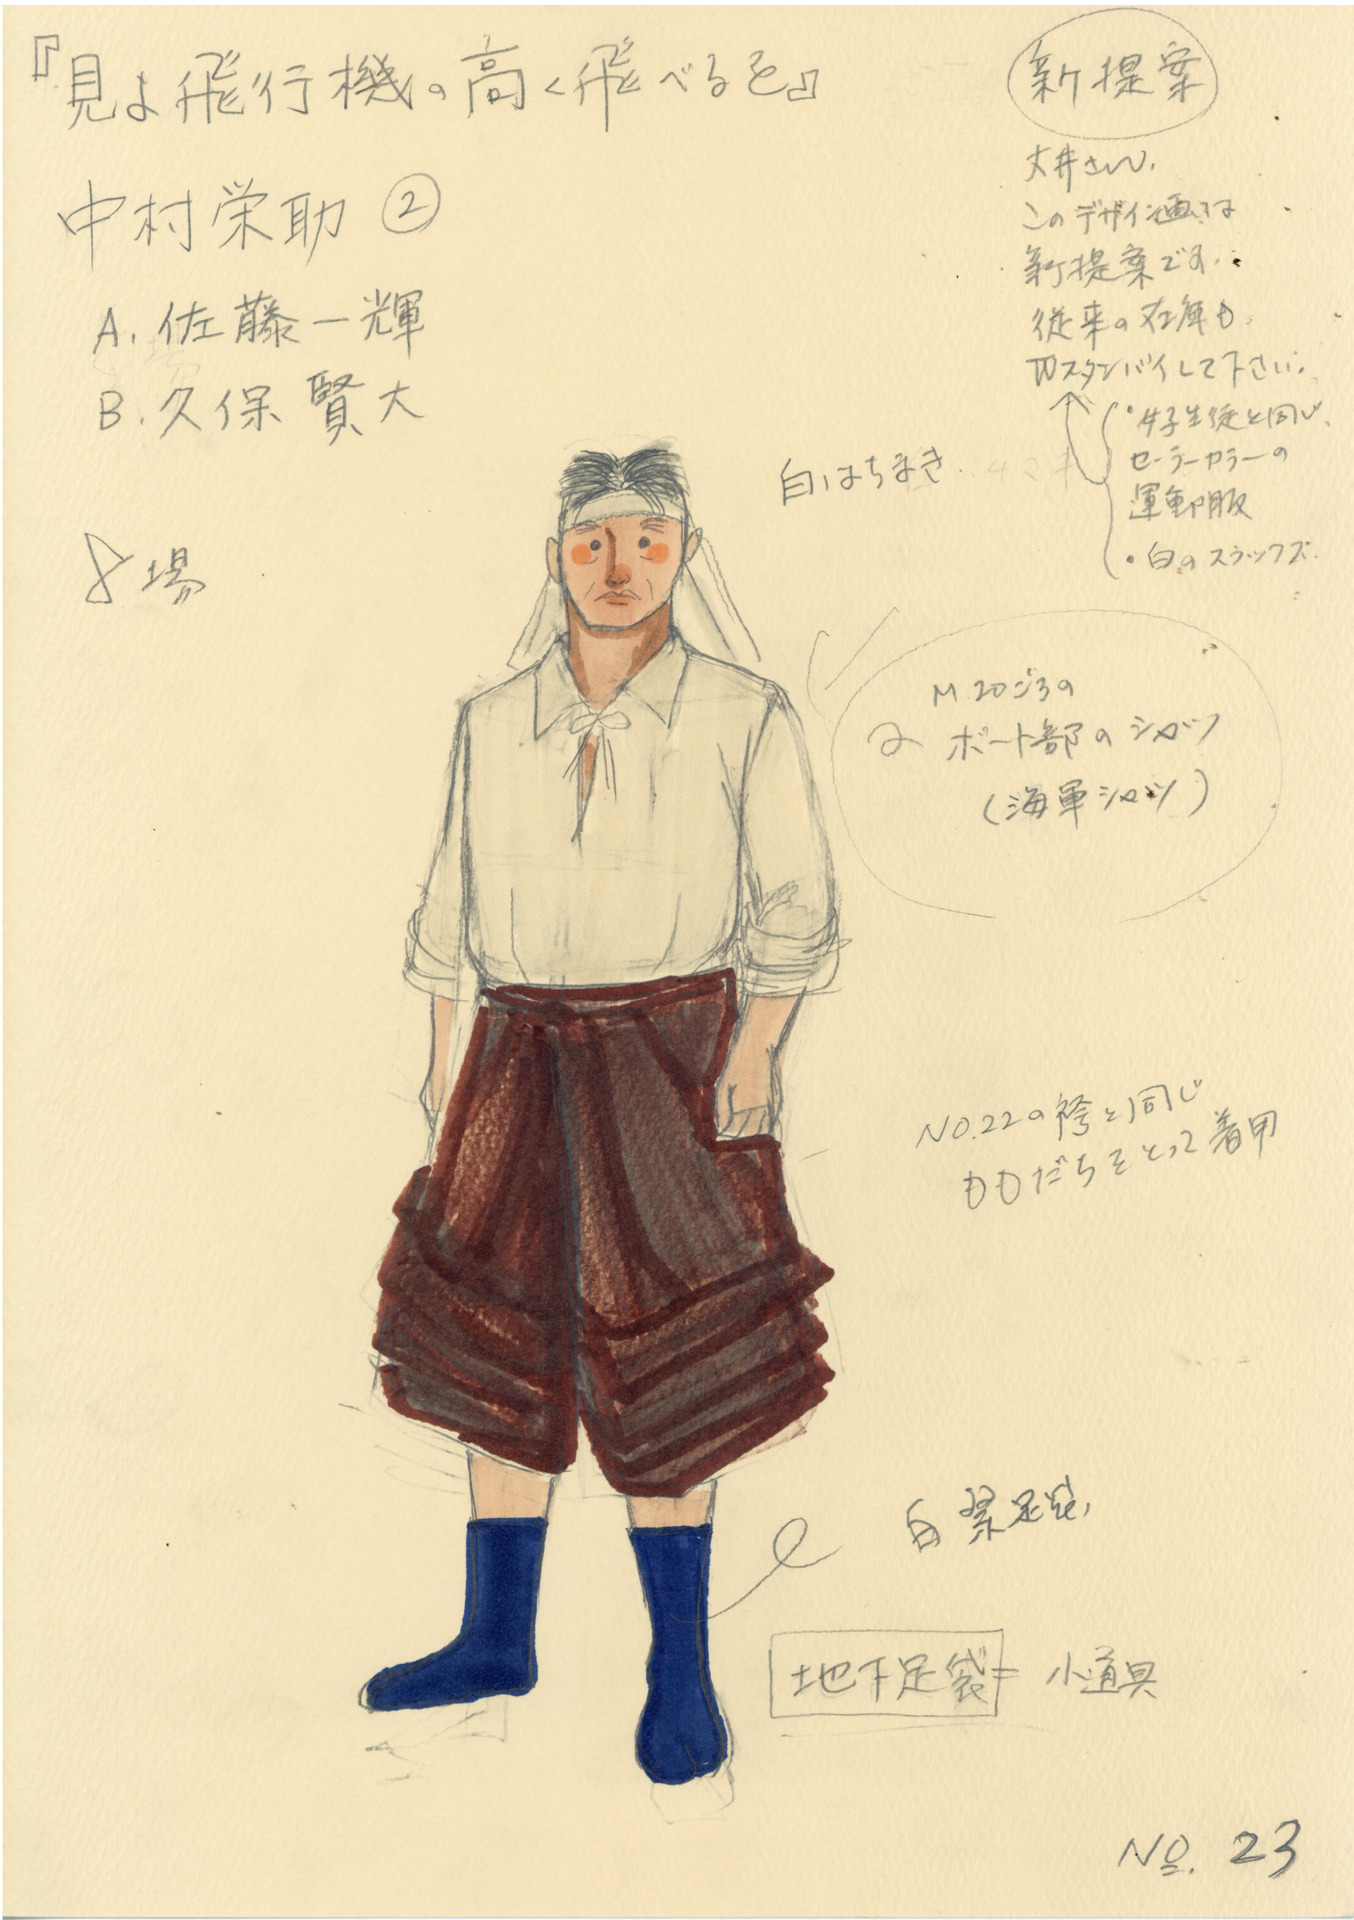 『見よ飛行機の高く飛べるを』
中村栄助 ②
A. 佐藤一輝
B. 久保賢大
8場
新提案
丈井さん、
このデザイン画は
新提案です。
従来の在庫も
スタンバイして下さい。
・女子生徒と同じ、
セーラーカラーの
運動服
・白のスラックス。
白いはちまき
M.20ごろの
ボート部のシャツ
(海軍シャツ)
NO.22の袴と同じ
ももだちをとって着用
白 足袋
地下足袋＝小道具
NO. 23